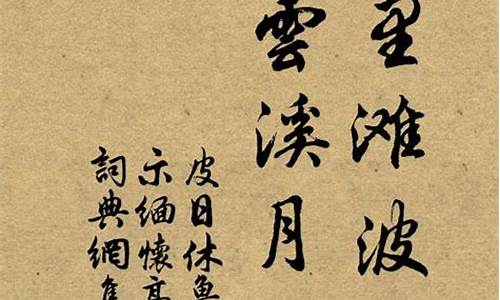 里滩波
雲溪月
皮日休
示緬懷
詞典網